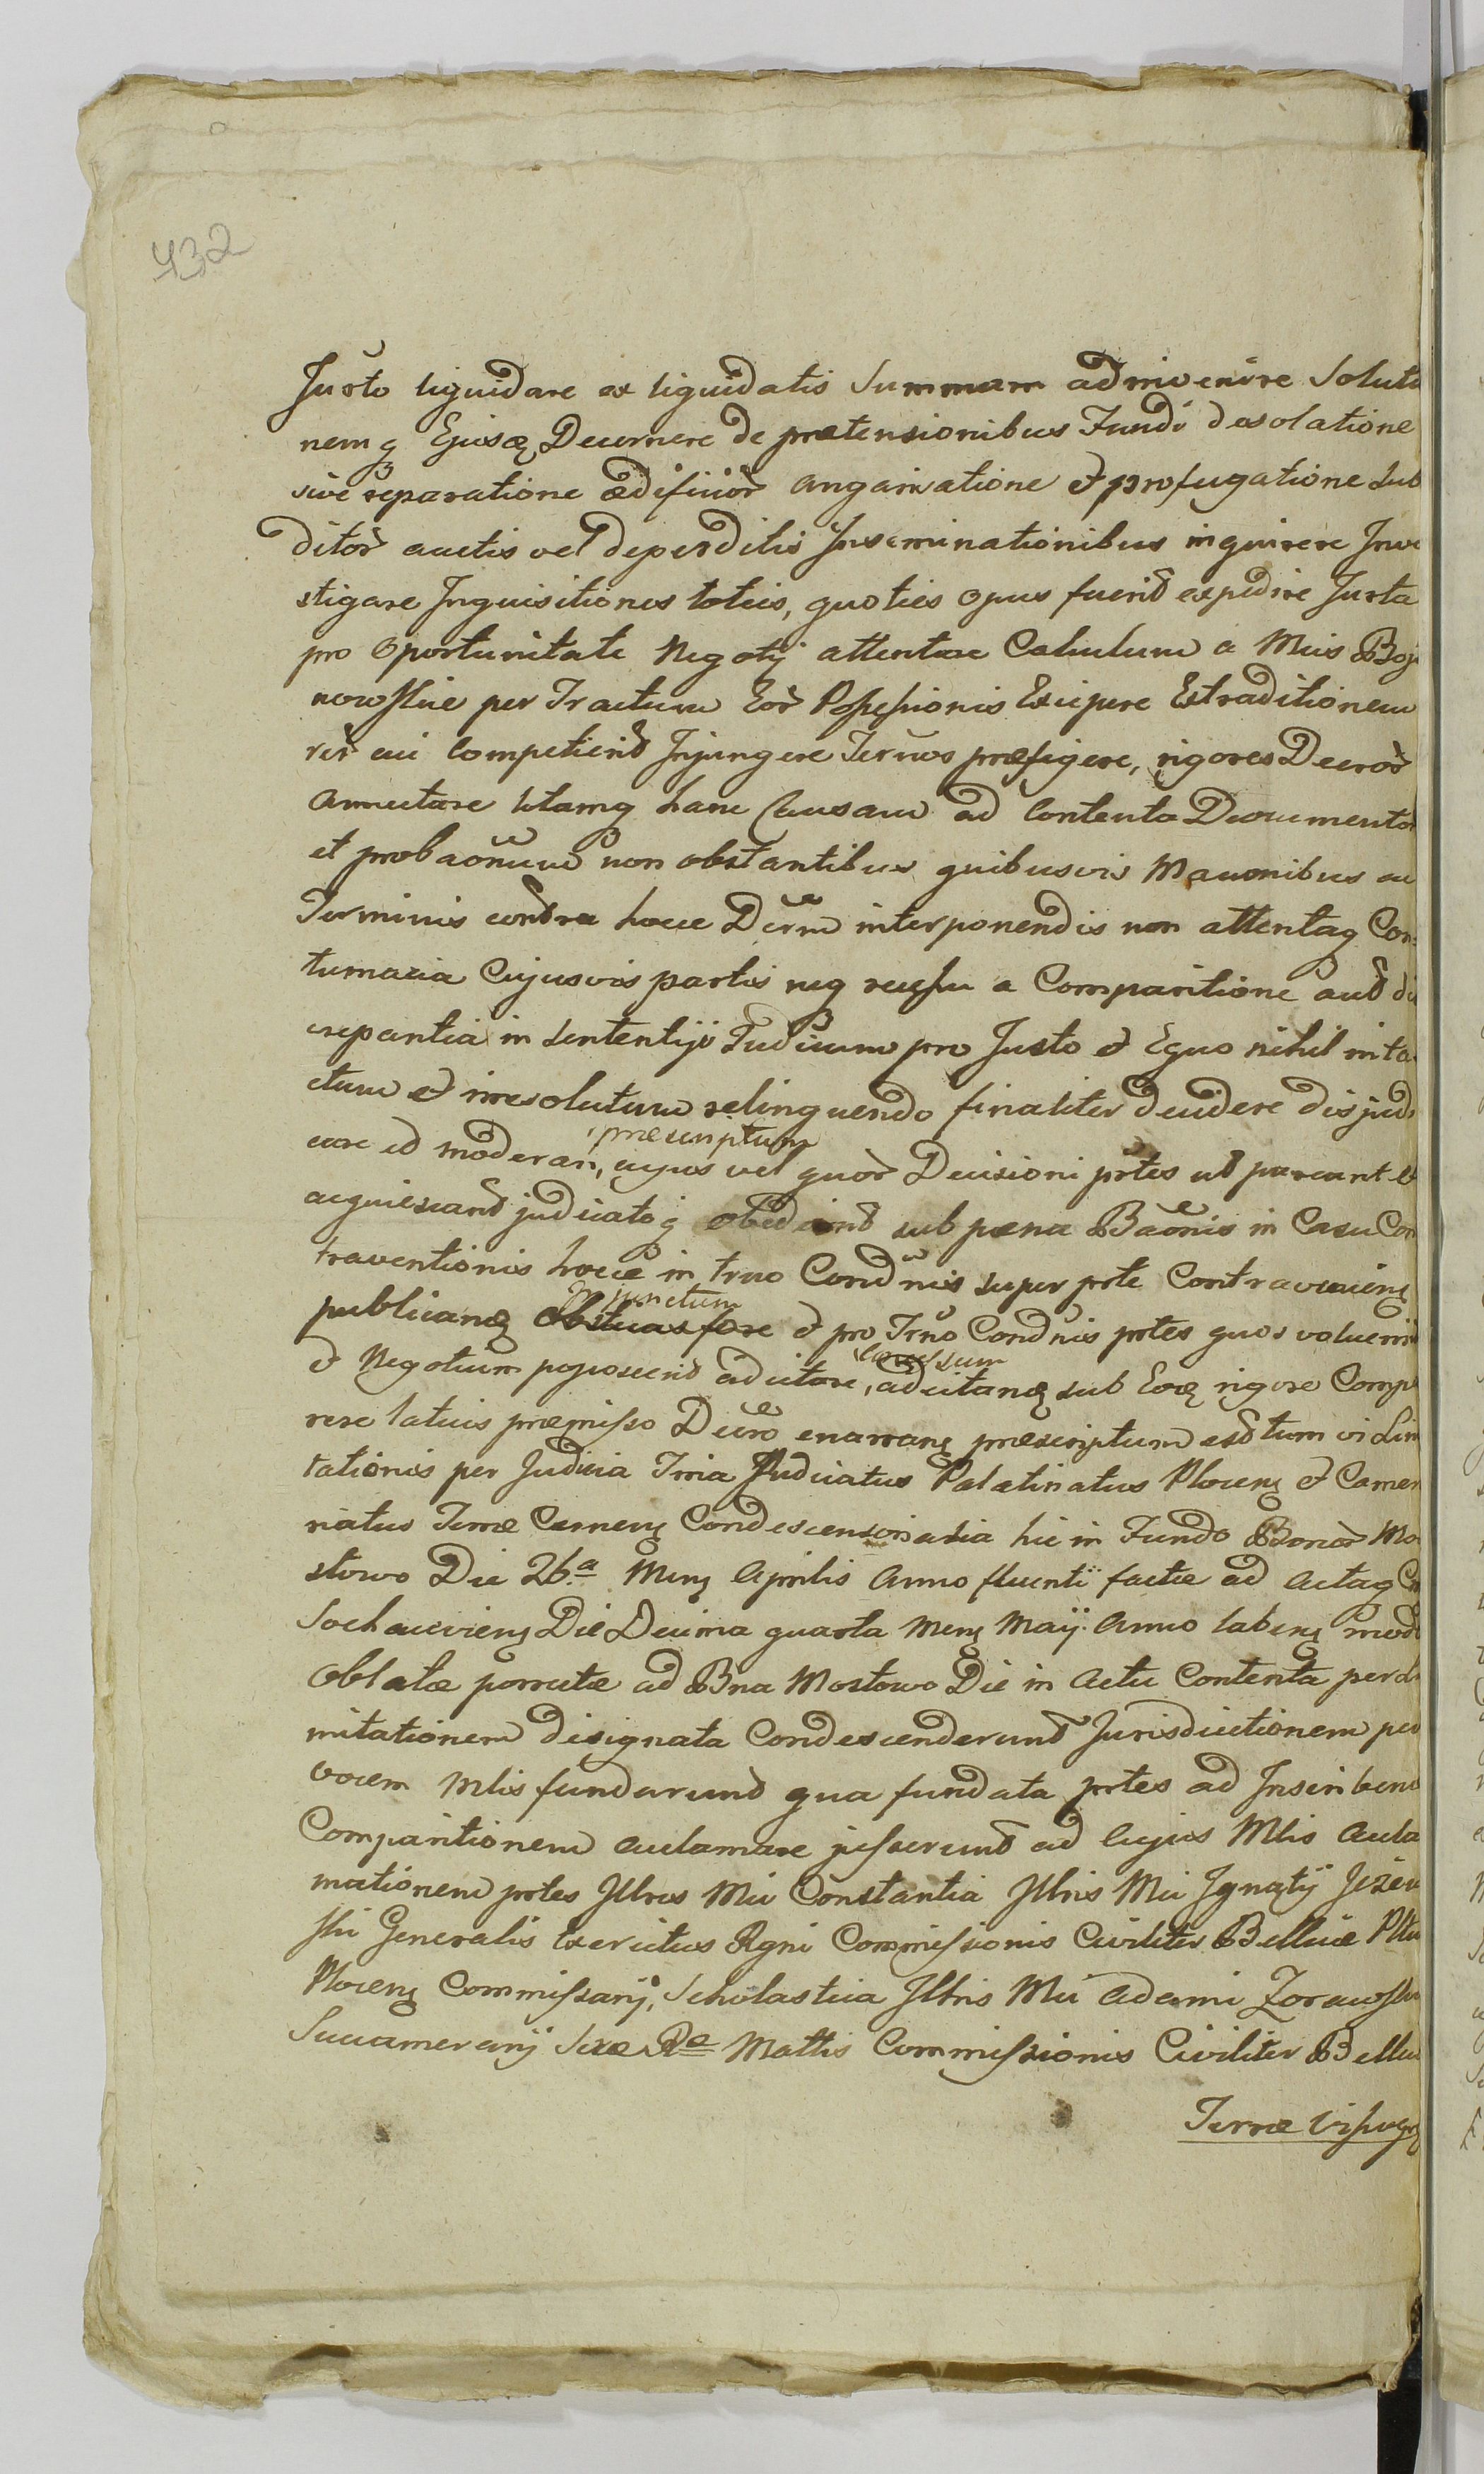 432
Juxto liquidare ex liquidatis Summam adinvenire Soluti
nemq Ejusq Decernere de prætensionibus Fundi desolatione
sive reparatione ædificior angariatione et profugatione sub
ditor auctis vel deperditis Inseminationibus inquirere Inve
stigare Inquisitiones toties, quoties opus fuerit expedire Juxta
pro oportunitate Negotij attentare Calculum a Mcis Boja
nowskie per Tractum Eor Possessionis Excipere Extraditionem
rer cui Competierit Injungere Termos præfigere, rigores Decror
Annectare totamq hanc Causam ad Contenta Documentor
et probaonum non obstantibus quibusvis
Terminis contra hocce Decrm interponendis non attentaq Con=
tumacia Cujusvis partis neq recessu a Comparitione aut di
screpantia in Sententijs Judicum pro Justo et Equo nihil inta
ctum et irresolutum relinquendo finaliter decidere disjudi
care ed moderari, cujus vel quor Decisioni prtes ut pareant et
præscriptum
acquiescant judicatoq obediant sub pæna Baonis in Casu Con
traventionis hocce in trno Condnis super prte Contravenienq
publicanq obstricas fore et pro Trno Condnis prtes quos voluerint
punctum
et Negotium poposcerit adcitare, adcitanq sub Eoq rigore Compa
censum
rere latius præmisso Decro enarranq præscriptum est tum vi Limi
tationis per Judicia Tria Judiciatus Palatinatus Plocenq et Camer
riatus Terræ Cernenq Condescensorialia hic in Fundo Bonor Mo
stowo Die 26.a Mensq Aprilis Anno fluenti factæ ad Actaq
Sochaczevienq Die Decima quarta Mensq Maij Anno labenq modo
Oblatæ porrectæ ad Bna Mostowo Die in Actu Contenta per Li
mitationem designata Condescenderunt Jurisdictionem per
vocem Mlis fundarunt qua fundata prtes ad Inscribend
Comparitionem acclamare jusserunt ad cujus Mlis accla
mationem prtes Illres Mcii Constantia Illris Mci Ignatij Jezew
ski Generalis Exercitus Regni Commissionis Civiliter Bellicæ Pltus
Plocenq Commissarij, Scholastica Illris Mci Adami Zorawski
Succamerarij Sacræ Ræ Mattis Commissionis Civiliter Bellic
Terræ Vissogrq